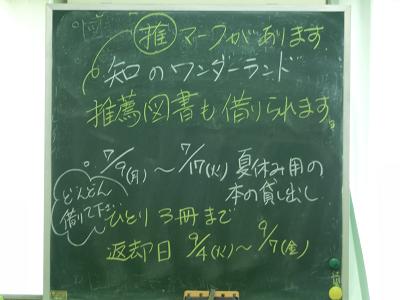 推 マークがあります。
知のワンダーランド
推薦図書も借りられます。
7/9(月)～7/17(火) 夏休み用の
本の貸し出し
どんどん
借りて下さい
ひとり3冊まで
返却日 9/4(火)～9/7(金)